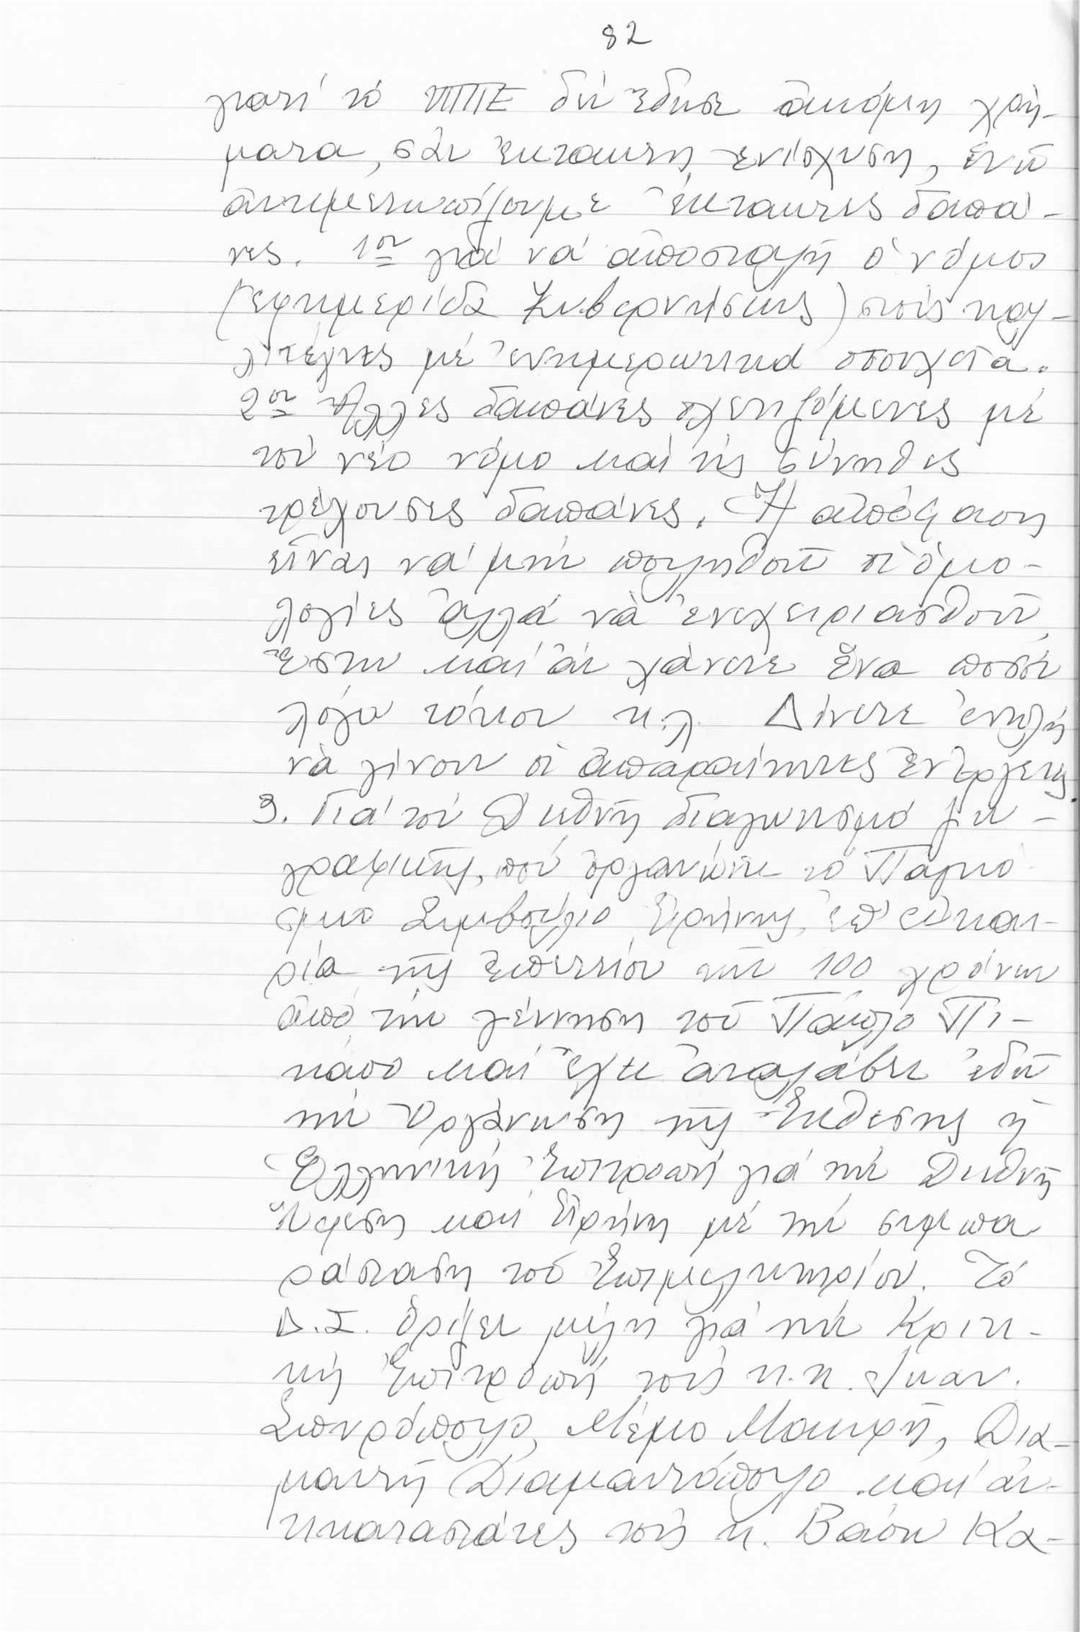 82
γιατί τό ΥΠΠΕ δέν ἔδωσε ἀκόμη χρή-
ματα, σάν ἔκτακτη ἐνίσχυση, ἐνῶ
ἀντιμετωπίζουμε ἔκτακτες δαπά-
νες. 1ον γιά νά ἀποσταλῆ ὁ νόμος
(ἐφημερίδα Κυβερνήσεως) στούς καλ-
λιτέχνες μέ ἐνημερωτικά στοιχεῖα.
2ον Ἄλλες δαπάνες σχετιζόμενες μέ
τόν νέο νόμο καί τίς σύνηθες
τρέχουσες δαπάνες. Ἡ ἀπόφαση
εἶναι νά μήν πουληθοῦν οἱ ὁμο-
λογίες ἀλλά νὰ ἐνεχειριασθοῦν,
ἔστω καί ἄν χάνετε ἕνα ποσόν
λόγω τόκου κ.λ. Δίνετε ἐντολή
νὰ γίνουν οἱ ἀπαραίτητες ἐνέργειες.
3. Γιά τόν Διεθνῆ διαγωνισμό ζω-
γραφικῆς, πού ὀργανώνει τό Παγκό
σμιο Συμβούλιο Εἰρήνης, ἐπ' εὐκαι-
ρία τῆς ἐπετείου τῶν 100 χρόνων
ἀπό τήν γέννηση τοῦ Πάμπλο Πι-
κάσο καί ἔχει ἀναλάβει ἐδῶ
τήν ὀργάνωση τῆς Ἔκθεσης ἡ
Ἑλληνική Ἐπιτροπή γιά τήν Διεθνῆ
Ὕφεση καί Εἰρήνη μέ τήν συμπα
ράσταση τοῦ Ἐπιμελητηρίου. Τό
Δ.Σ. ὁρίζει μέλη γιά τήν Κριτι-
κή Ἐπιτροπή τούς κ.κ. Ἰωαν.
Σπυρόπουλο, Μέμο Μακρῆ, Δια-
μαντῆ Διαμαντόπουλο καί ἀν-
τικαταστάτες τούς κ. Βάσω Κα-